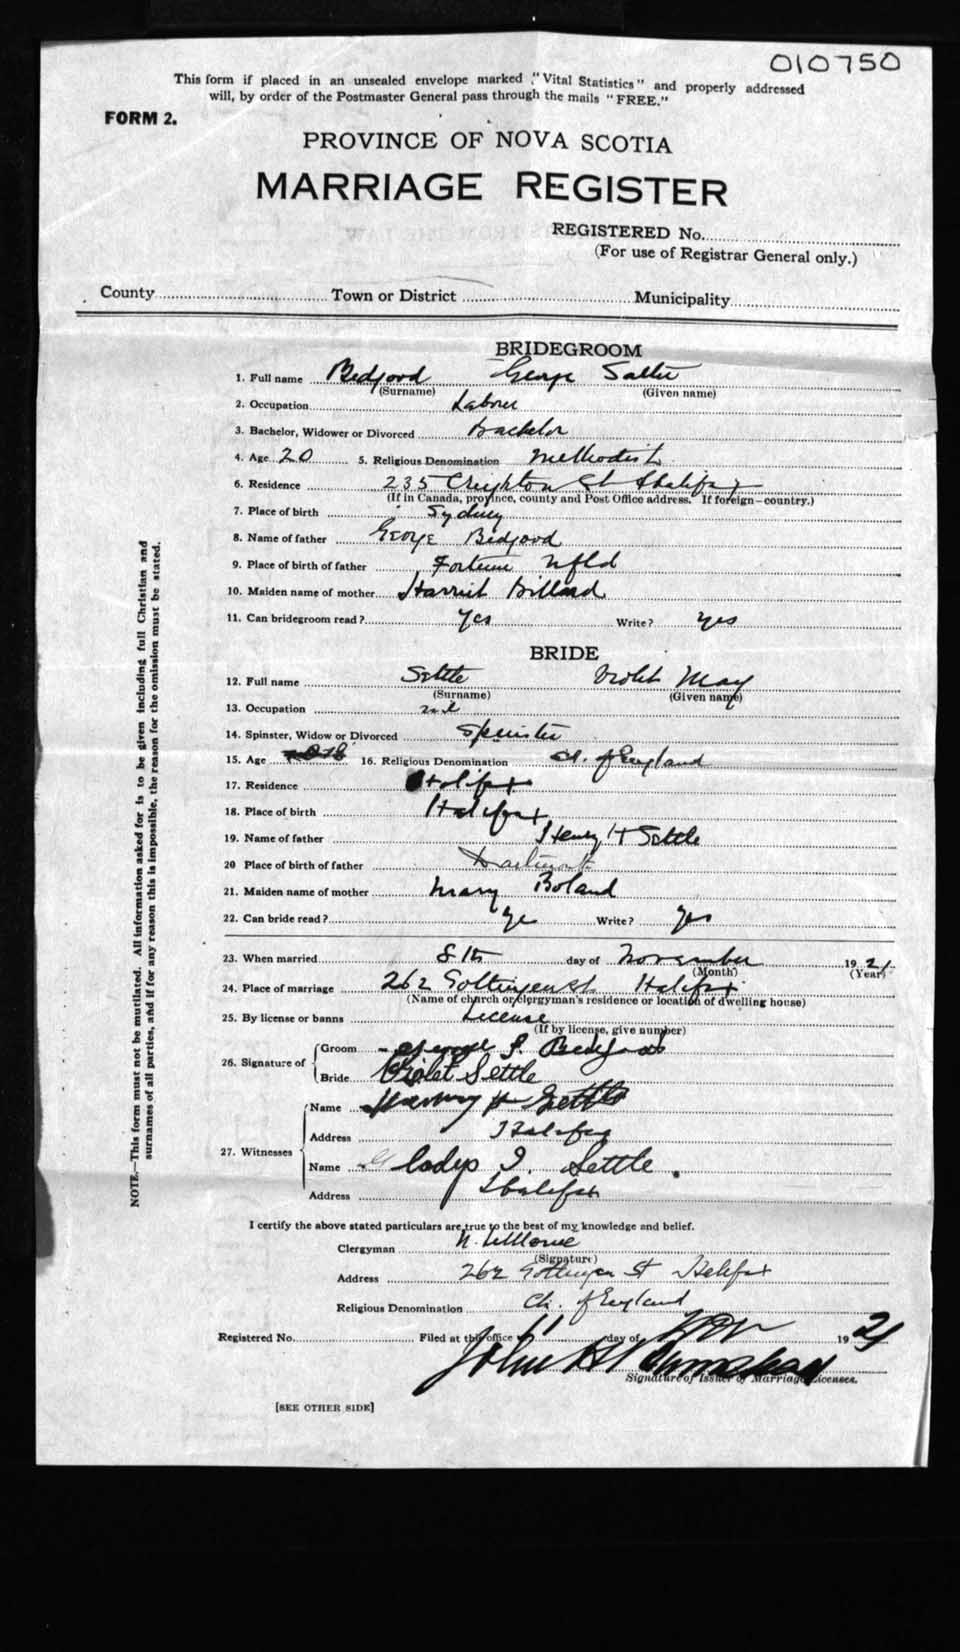 010750
This form if placed in an unsealed envelope marked "Vital Statistics" and properly addressed
will, by order of the Postmaster General pass through the mails "FREE."
FORM 2.
PROVINCE OF NOVA SCOTIA
MARRIAGE REGISTER
REGISTERED No.
(For use of Registrar General only.)
County Town or District Municipality
BRIDEGROOM
1. Full name Bedford George Salter
(Surname) (Given name)
2. Occupation Laborer
3. Bachelor, Widower or Divorced Bachelor
4. Age 20 5. Religious Denomination Methodist
6. Residence 235 Creighton St Halifax
(If in Canada, province, county and Post Office address. If foreign—country.)
7. Place of birth Sydney
8. Name of father George Bedford
9. Place of birth of father Fortune Nfld
10. Maiden name of mother Harriet Billard
11. Can bridegroom read? Yes Write? yes
BRIDE
12. Full name Settle Violet May
(Surname) (Given name)
13. Occupation
14. Spinster, Widow or Divorced Spinster
15. Age 18 16. Religious Denomination Ch. of England
17. Residence Halifax
18. Place of birth Halifax
19. Name of father Henry H Settle
20 Place of birth of father Dartmouth
21. Maiden name of mother Mary Boland
22. Can bride read? Ye Write? Yes
23. When married 8th day of November 1921
(Month) (Year)
24. Place of marriage 262 Gottingen St Halifax
(Name of church or clergyman's residence or location of dwelling house)
25. By license or banns License
(If by license, give number)
26. Signature of
Groom George S. Bedford
Bride Violet Settle
27. Witnesses
Name Harvey H Settle
Address Halifax
Name Gladys I. Settle.
Address Halifax
I certify the above stated particulars are true to the best of my knowledge and belief.
Clergyman N.
(Signature)
Address 262 Gottingen St Halifax
Religious Denomination Ch. of England
Registered No. Filed at the office 11 day of Nov 1921
John
Signature of Issuer of Marriage Licenses.
[SEE OTHER SIDE]
NOTE—This form must not be mutilated. All information asked for is to be given including full Christian and
surnames of all parties, and if for any reason this is impossible, the reason for the omission must be stated.